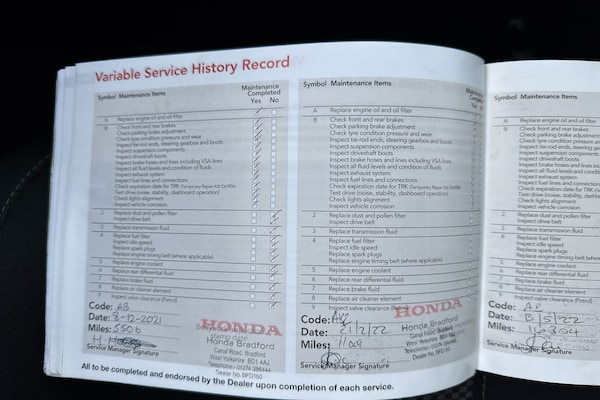 Variable Service History Record
Symbol Maintenance Items
Maintenance
Completed
Yes No
A Replace engine oil and oil filter
B Check front and rear brakes
Check parking brake adjustment
Check tyre condition pressure and wear
Inspect tie-rod ends, steering gearbox and boots
Inspect suspension components
Inspect driveshaft boots
Inspect brake hoses and lines including VSA lines
Inspect all fluid levels and condition of fluids
Inspect exhaust system
Inspect fuel lines and connections
Check expiration date for TRK (Temporary Repair Kit) bottle
Test drive (noise, stability, dashboard operation)
Check lights alignment
Inspect vehicle corrosion
2 Replace dust and pollen filter
Inspect drive belt
3 Replace transmission fluid
4 Replace fuel filter
Inspect idle speed
Replace spark plugs
Replace engine timing belt (where applicable)
5 Replace engine coolant
6 Replace rear differential fluid
7 Replace brake fluid
8 Replace air cleaner element
9 Inspect valve clearance (Petrol)
Code: AB
Date: 8-12-2021
Miles: 5506
Service Manager Signature
HONDA
Honda Bradford
Canal Road, Bradford
West Yorkshire BD1 4AJ
Dealer No. BFD150
Symbol Maintenance Items
Maintenance
A Replace engine oil and oil filter
B Check front and rear brakes
Check parking brake adjustment
Check tyre condition pressure and wear
Inspect tie-rod ends, steering gearbox and boots
Inspect suspension components
Inspect driveshaft boots
Inspect brake hoses and lines including VSA lines
Inspect all fluid levels and condition of fluids
Inspect exhaust system
Inspect fuel lines and connections
Check expiration date for TRK (Temporary Repair Kit) bottle
Test drive (noise, stability, dashboard operation)
Check lights alignment
Inspect vehicle corrosion
2 Replace dust and pollen filter
Inspect drive belt
3 Replace transmission fluid
4 Replace fuel filter
Inspect idle speed
Replace spark plugs
Replace engine timing belt (where applicable)
5 Replace engine coolant
6 Replace rear differential fluid
7 Replace brake fluid
8 Replace air cleaner element
9 Inspect valve clearance
Code:
Date: 21/2/22
Miles:
Service Manager Signature
HONDA
Honda Bradford
Canal Road, Bradford
West Yorkshire BD1 4AJ
Dealer No. BFD150
All to be completed and endorsed by the Dealer upon completion of each service.
Symbol Maintenance Items
A Replace engine oil and oil filter
B Check front and rear brakes
Check parking brake adjustment
Check tyre condition pressure
Inspect tie-rod ends, steering
Inspect suspension components
Inspect driveshaft boots
Inspect brake hoses and lines
Inspect all fluid levels and
Inspect exhaust system
Inspect fuel lines and connections
Check expiration date for TRK
Test drive (noise, stability,
Check lights alignment
Inspect vehicle corrosion
2 Replace dust and pollen filter
Inspect drive belt
3 Replace transmission fluid
4 Replace fuel filter
Inspect idle speed
Replace spark plugs
Replace engine timing belt
5 Replace engine coolant
6 Replace rear differential fluid
7 Replace brake fluid
8 Replace air cleaner element
9 Inspect valve clearance (Petrol)
Code:
Date:
Miles:
Service Manager Signature